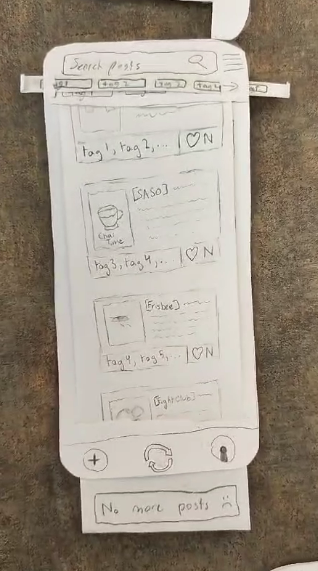 Search posts
tag 2
tag 1, tag 2, ... ♡N
[SASO]
Chai
Time
tag 3, tag 4, .. ♡N
[Frisbee]
tag 4, tag 5, ... ♡N
[Fight Club]
+
No more posts :(